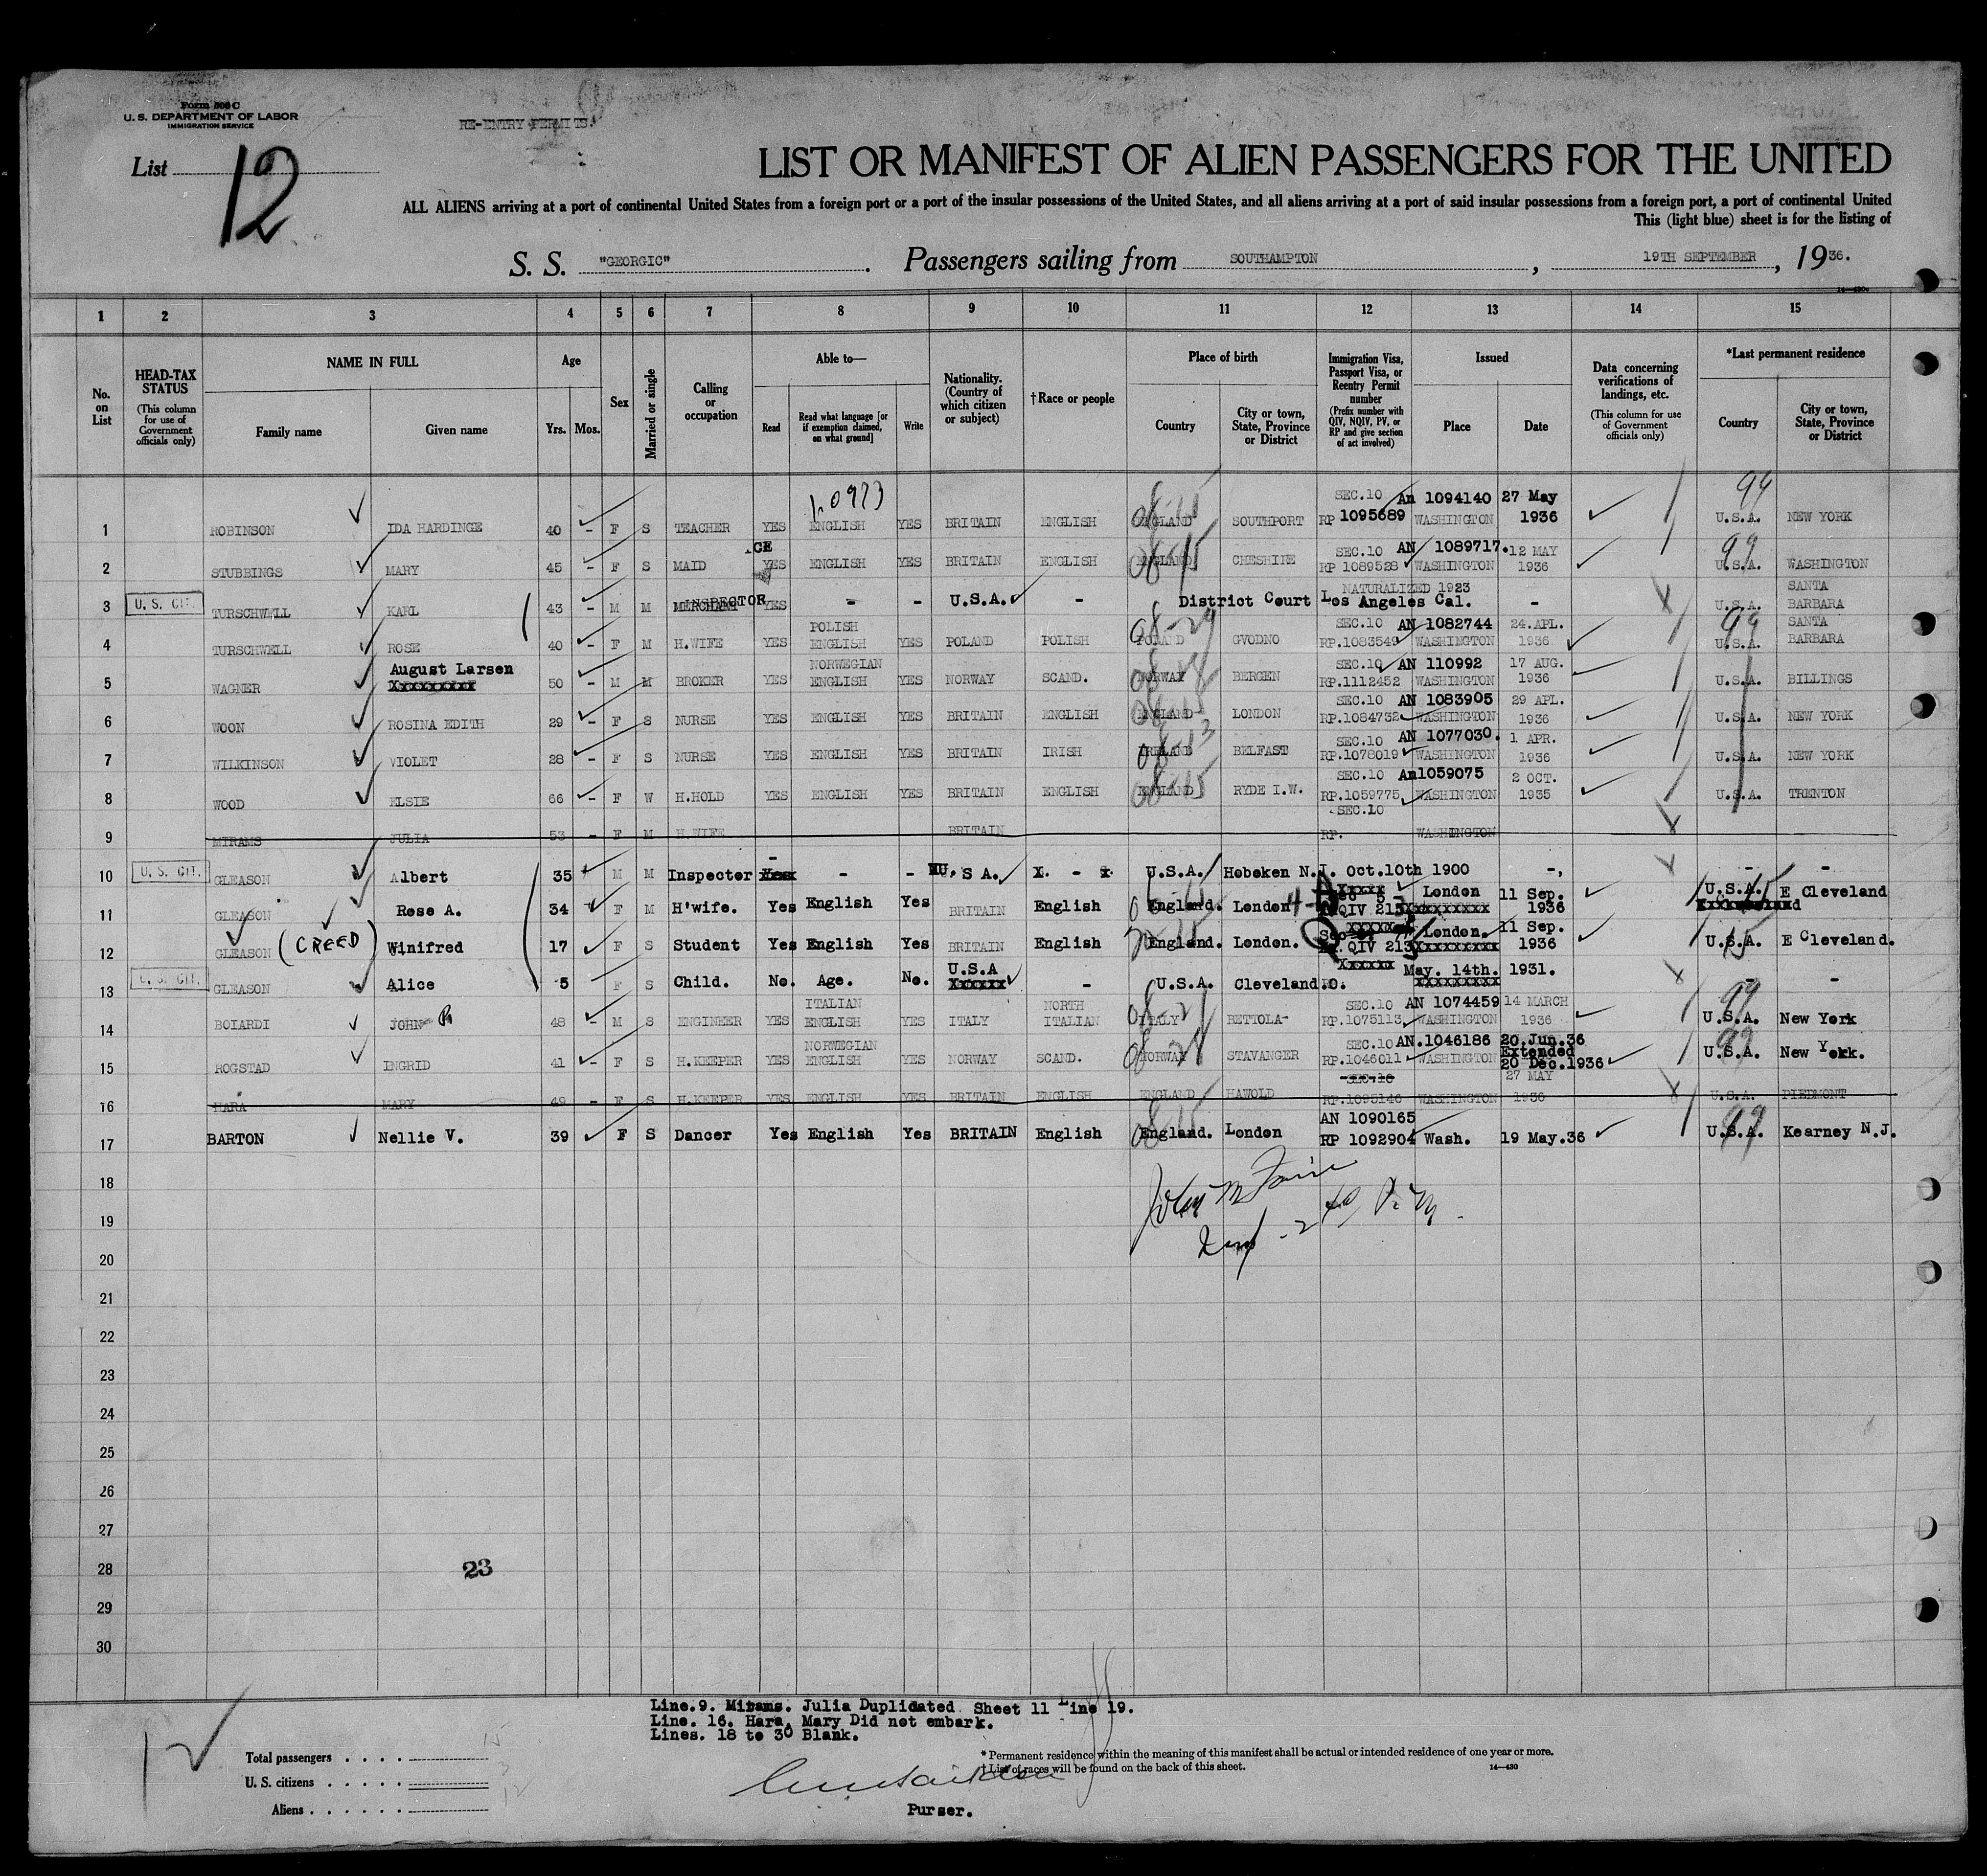 Form 500 C
U. S. DEPARTMENT OF LABOR
IMMIGRATION SERVICE
RE-ENTRY PERMITS.
List 12
LIST OR MANIFEST OF ALIEN PASSENGERS FOR THE UNITED
ALL ALIENS arriving at a port of continental United States from a foreign port or a port of the insular possessions of the United States, and all aliens arriving at a port of said insular possessions from a foreign port, a port of continental United
This (light blue) sheet is for the listing of
S. S. "GEORGIC". Passengers sailing from SOUTHAMPTON, 19TH SEPTEMBER, 1936.
1 2 3 4 5 6 7 8 9 10 11 12 13 14 15
No. on List
HEAD-TAX STATUS (This column for use of Government officials only)
NAME IN FULL Family name Given name
Age Yrs. Mos.
Sex
Married or single
Calling or occupation
Able to— Read Read what language [or if exemption claimed, on what ground] Write
Nationality. (Country of which citizen or subject)
†Race or people
Place of birth Country City or town, State, Province or District
Immigration Visa, Passport Visa, or Reentry Permit number (Prefix number with QIV, NQIV, PV, or RP and give section of act involved)
Issued Place Date
Data concerning verifications of landings, etc. (This column for use of Government officials only)
*Last permanent residence Country City or town, State, Province or District
1 ROBINSON IDA HARDINGE 40 - F S TEACHER YES ENGLISH YES BRITAIN ENGLISH ENGLAND SOUTHPORT SEC.10 An 1094140 RP 1095689 WASHINGTON 27 May 1936 99 U.S.A. NEW YORK
2 STUBBINGS MARY 45 - F S MAID YES ENGLISH YES BRITAIN ENGLISH ENGLAND CHESHIRE SEC.10 AN 1089717. RP 1089528 WASHINGTON 12 MAY 1936 99 U.S.A. WASHINGTON
3 U. S. CIT. TURSCHWELL KARL 43 - M M INSPECTOR YES - - U.S.A. - NATURALIZED 1923 District Court Los Angeles Cal. - U.S.A. SANTA BARBARA
4 TURSCHWELL ROSE 40 - F M H.WIFE YES POLISH ENGLISH YES POLAND POLISH POLAND GVODNO SEC.10 AN 1082744 RP.1083549 WASHINGTON 24.APL. 1936 99 U.S.A. SANTA BARBARA
5 WAGNER August Larsen 50 - M M BROKER YES NORWEGIAN ENGLISH YES NORWAY SCAND. NORWAY BERGEN SEC.10 AN 110992 RP.1112452 WASHINGTON 17 AUG. 1936 U.S.A. BILLINGS
6 WOON ROSINA EDITH 29 - F S NURSE YES ENGLISH YES BRITAIN ENGLISH ENGLAND LONDON SEC.10 AN 1083905 RP.1084732 WASHINGTON 29 APL. 1936 U.S.A. NEW YORK
7 WILKINSON VIOLET 28 - F S NURSE YES ENGLISH YES BRITAIN IRISH IRELAND BELFAST SEC.10 AN 1077030. RP.1078019 WASHINGTON 1 APR. 1936 U.S.A. NEW YORK
8 WOOD ELSIE 66 - F W H.HOLD YES ENGLISH YES BRITAIN ENGLISH ENGLAND RYDE I.W. SEC.10 An1059075 RP.1059775 WASHINGTON 2 OCT. 1935 U.S.A. TRENTON
9 MIRAMS JULIA 53 - F M H.WIFE BRITAIN SEC.10 RP. WASHINGTON
10 U. S. CIT. GLEASON Albert 35 M M Inspector - - U.S A. - U.S.A. Hoboken N.J. Oct.10th 1900 -, - -
11 GLEASON Rose A. 34 F M H'wife. Yes English Yes BRITAIN English England. London Sec 5 QIV 213 London 11 Sep. 1936 U.S.A. E Cleveland
12 GLEASON (CREED) Winifred 17 F S Student Yes English Yes BRITAIN English England. London. QIV 213 London. 11 Sep. 1936 U.S.A. E Cleveland.
13 U. S. CIT. GLEASON Alice 5 F S Child. No. Age. No. U.S.A - U.S.A. Cleveland O. May. 14th. 1931. - -
14 BOIARDI JOHN 48 - M S ENGINEER YES ITALIAN ENGLISH YES ITALY NORTH ITALIAN ITALY BETTOLA- SEC.10 AN 1074459 RP.1075113 WASHINGTON 14 MARCH 1936 99 U.S.A. New York
15 ROGSTAD INGRID 41 - F S H.KEEPER YES NORWEGIAN ENGLISH YES NORWAY SCAND. NORWAY STAVANGER SEC.10 AN.1046186 RP.1046011 WASHINGTON 20 Jun.36 Extended 20 Dec.1936 99 U.S.A. New York.
16 HARA MARY 49 - F S H.KEEPER YES ENGLISH YES BRITAIN ENGLISH ENGLAND HAWOLD SEC.10 RP.1093146 WASHINGTON 27 MAY 1936 U.S.A. PIEDMONT
17 BARTON Nellie V. 39 F S Dancer Yes English Yes BRITAIN English England. London AN 1090165 RP 1092904 Wash. 19 May.36 99 U.S.A. Kearney N.J.
18
19
20
21
22
23
24
25
26
27
28
29
30
23
Line.9. Mirams. Julia Duplidated Sheet 11 Line 19.
Line. 16. Hara, Mary Did not embark.
Lines. 18 to 30 Blank.
Total passengers . . . . 15
U. S. citizens . . . . . 3
Aliens . . . . . . 12
* Permanent residence within the meaning of this manifest shall be actual or intended residence of one year or more.
† List of races will be found on the back of this sheet.
14—430
Purser.